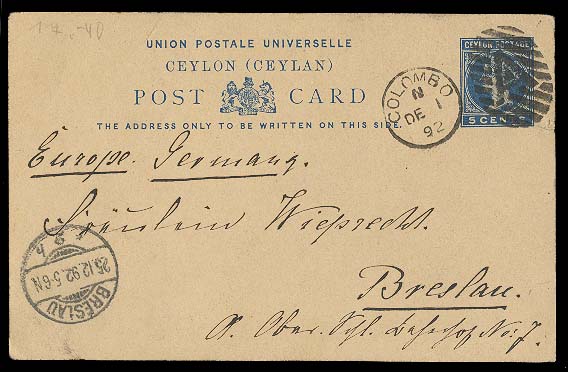 UNION POSTALE UNIVERSELLE
CEYLON (CEYLAN)
POST CARD
THE ADDRESS ONLY TO BE WRITTEN ON THIS SIDE.
CEYLON POSTAGE
5 CENTS
COLOMBO
N
DE 1
92
Europe. Germany.
Fräulein Wieprecht.
Breslau.
A. Ober. Schl. Bahnhof No: 7.
25.12.92.5-6N
BRESLAU